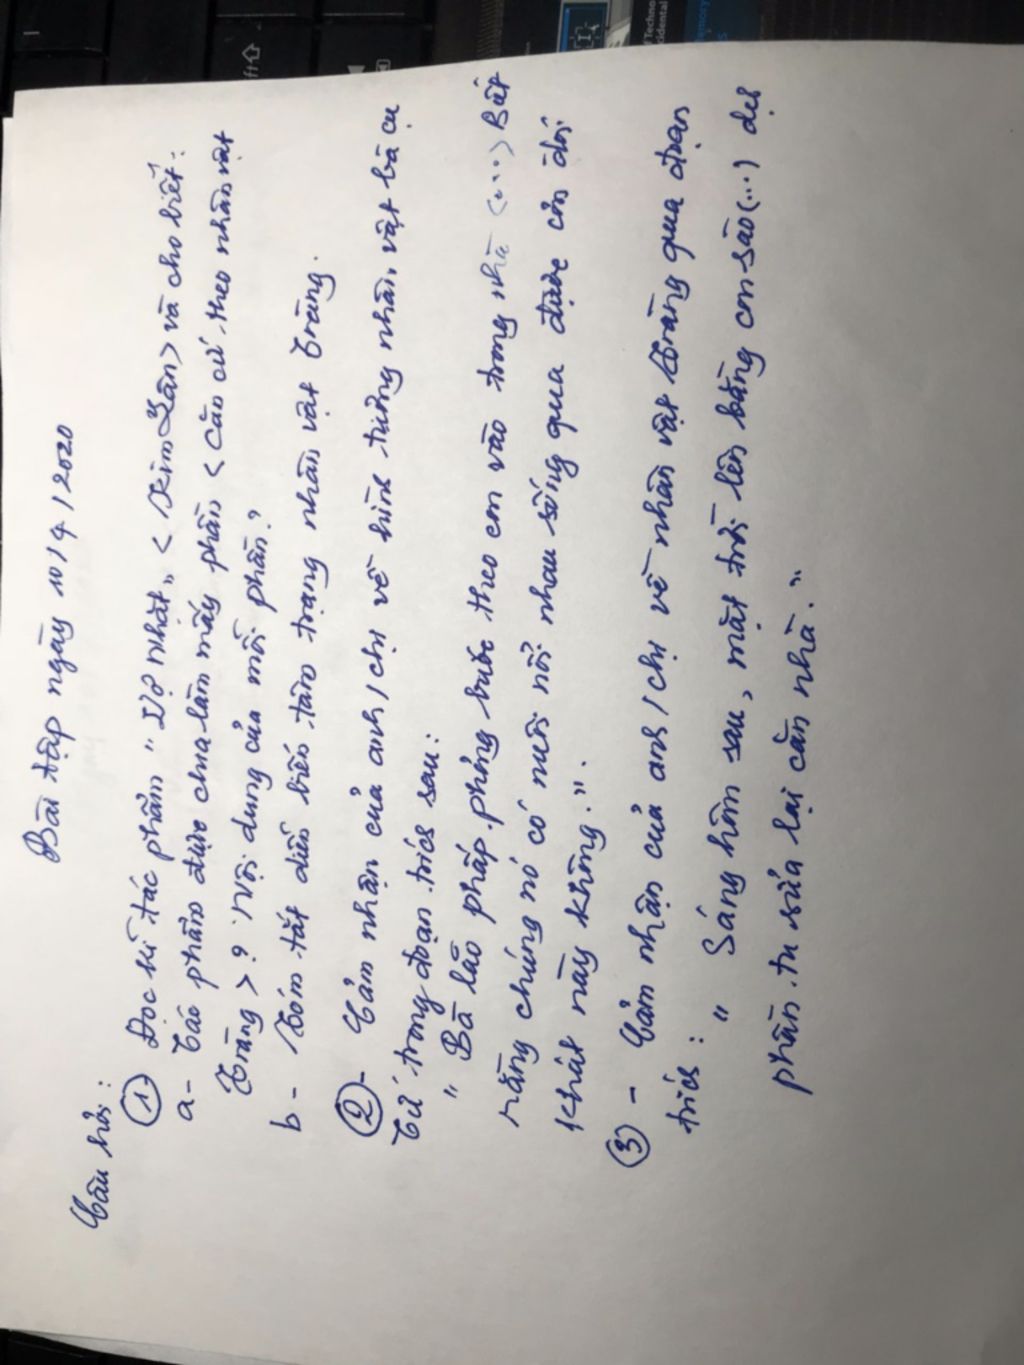 Bài tập ngày 10/4/2020
Câu hỏi:
① Đọc kĩ tác phẩm "Vợ nhặt" < Kim Lân > và cho biết:
a- Tác phẩm được chia làm mấy phần < căn cứ theo nhân vật
Tràng >? Nội dung của mỗi phần?
b- Tóm tắt diễn biến tâm trạng nhân vật Tràng.
②- Cảm nhận của anh/chị về hình tượng nhân vật bà cụ
Tứ trong đoạn trích sau:
" Bà lão phấp phỏng bước theo con vào trong nhà <...> Biết
rằng chúng nó có nuôi nổi nhau sống qua được cơn đói
khát này không.".
③ - Cảm nhận của anh/chị về nhân vật Tràng qua đoạn
trích:
" Sáng hôm sau, mặt trời lên bằng con sào (...) dự
phần tu sửa lại căn nhà."
ft
Techno
idental